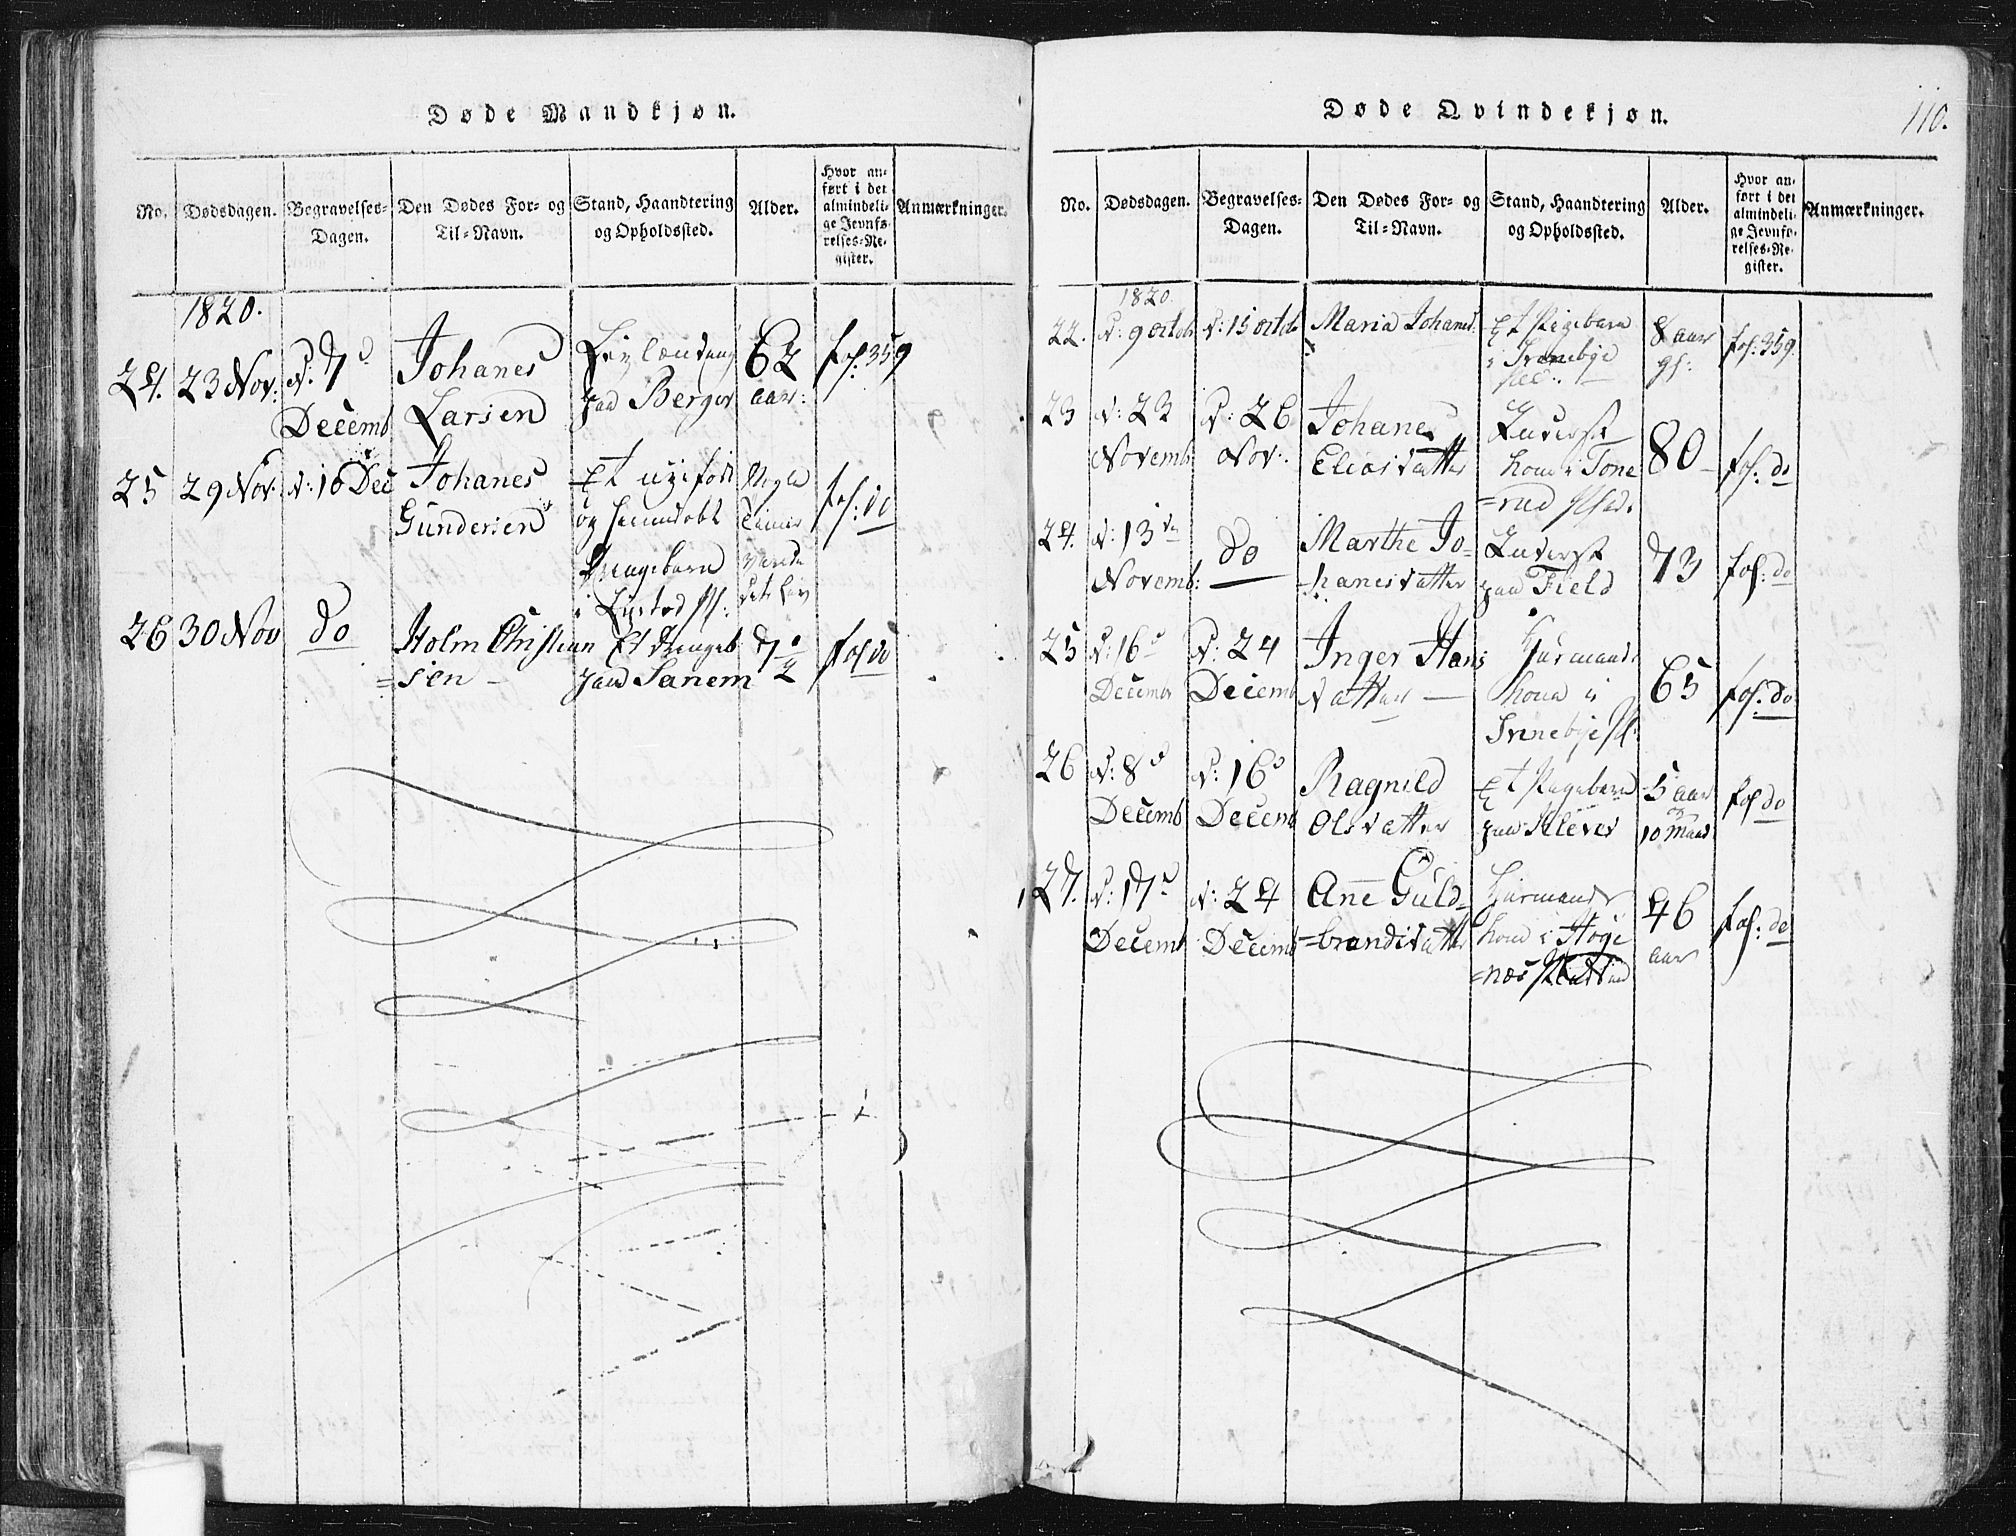 Døde Mandkjøn.
No.
Dødsdagen.
Begravelses-
Dagen.
Den Dødes For- og
Til-Navn.
Stand, Haandtering
og Opholdssted.
Alder.
Hvor an-
ført i det
almindeli-
ge Jevnfø-
relses-Re-
gister.
Anmærkninger.
1820.
24. 23 Nov: d: 7d
Decemb
Johanes
Larsen
paa Berger
62
aar:
fol: 359
25 29 Nov: d: 10 Dec
Johanes
Gundersen
Et ugifød
og
Drengebarn
i
Nogle
Timer
fol: do
26 30 Nov do
Holm Christian
=sen
Et Drengeb
paa Sanem
fol do
Døde Qvindekjøn.
110.
No.
Dødsdagen.
Begravelses-
Dagen.
Den Dødes For- og
Til-Navn.
Stand, Haandtering
og Opholdssted.
Alder.
Hvor an-
ført i det
almindeli-
ge Jevnfø-
relses-Re-
gister.
Anmærkninger.
1820.
22. d: 9 octob d: 15 octob
Maria Johanes
Et Pigebarn
i
8 aar
gl:
fol: 359.
23 d: 23
Novemb
d: 26
Nov:
Johane
Eliasdatter
Inderst
kone i Tone
=rud
80
fol: do
24. d: 13de
Novemb:
do
Marthe Jo-
hanesdatter
Inderst
paa Field
73
fol: do
25 d: 16d
Decembr
d: 24
Decemb
Inger Hans
datter
Huusmands
kone i
65
fol. do
26 d: 8d
Decemb
d: 16d
Decemb
Ragnild
Olsdatter
Et Pigebarn
paa Klever
5 aar
10 Maan
fol do
27. d: 17d
Decemb
d: 24
Decemb
Ane Guld-
=brandsdatter
Huusmands
kone i Høge
=næs
46
aar
fol: do